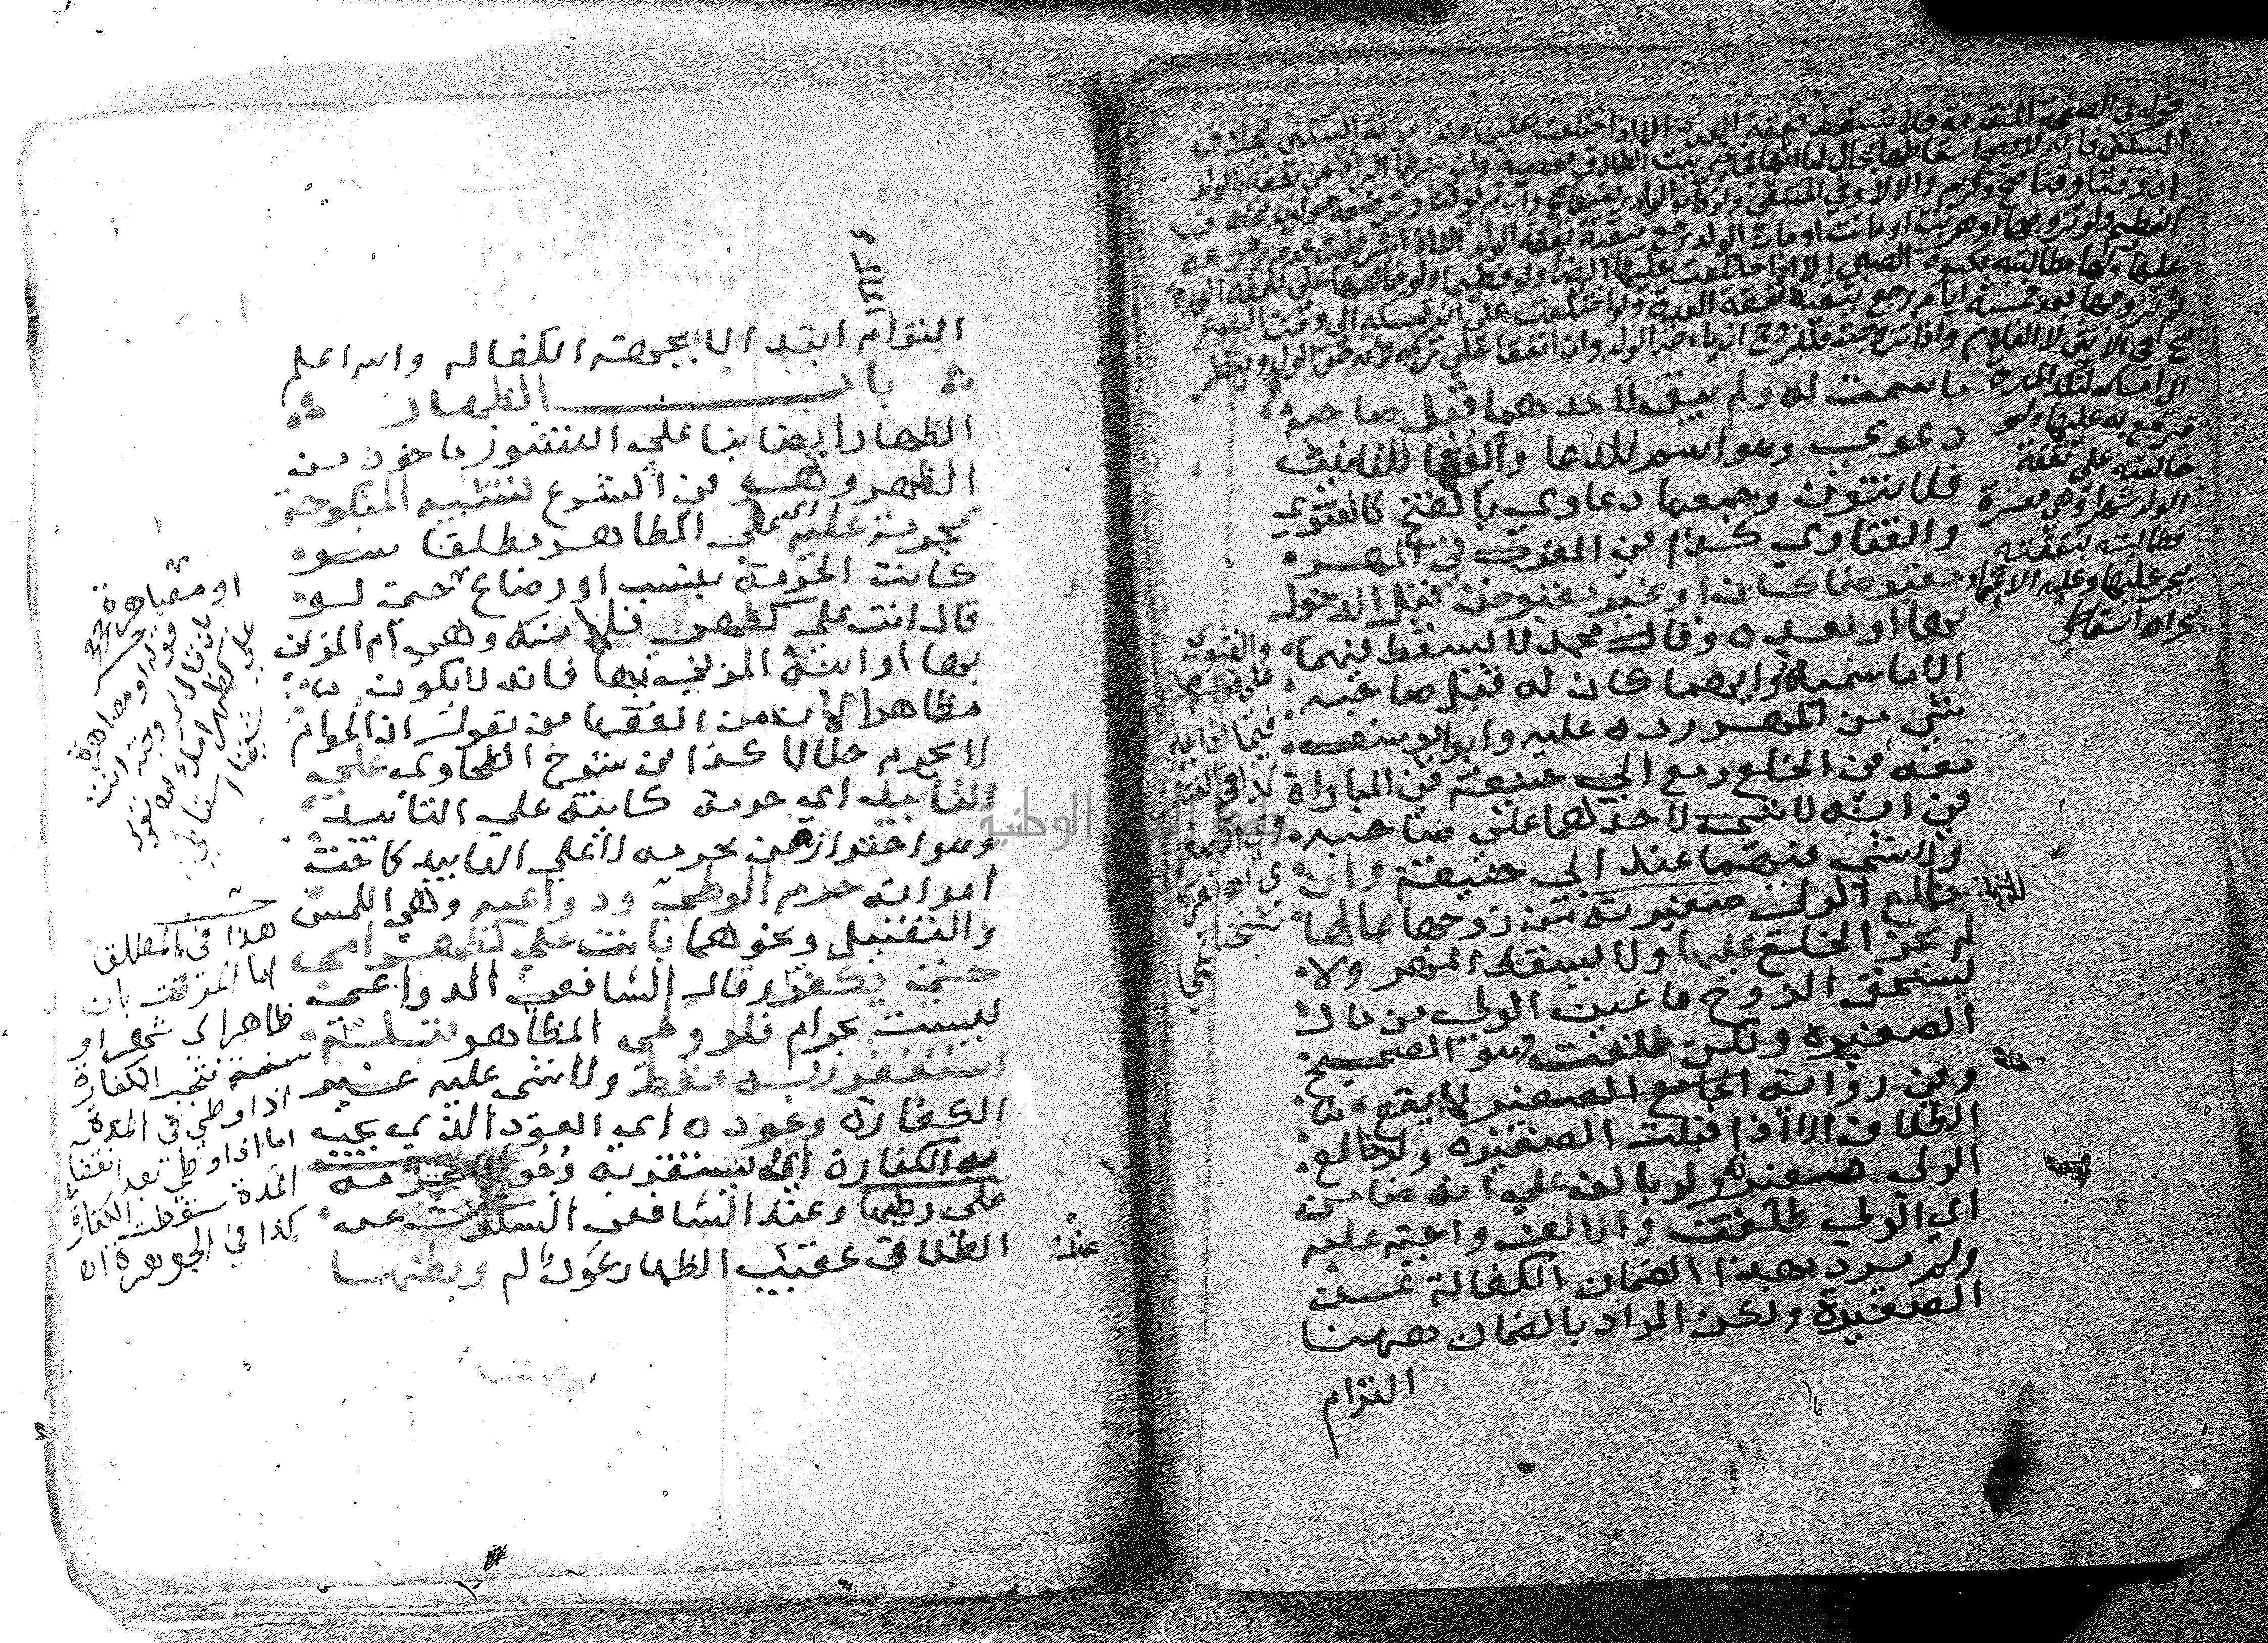 قوله في الصفحة المتقدمة فلا تسقط نفقة العدة الا اذا اختلعت عليها وكذا مؤنة السكنى بخلاف
السكنى فانه لا يصح اسقاطها بحال لما انها في غير بيت الطلاق معصية وان شرطا البراة من نفقة الولد
ان وقتا وقتا صح ولزم والا لا وفي المنتقى ولو كان الولد رضيعا صح وان لم يوقتا وترضعه حولين بخلاف
الفطيم ولو تزوجها او هربت او ماتت او مات الولد رجع ببقية نفقة الولد الا اذا شرطت عدم رجوعه
عليها ولها مطالبته بكسوة الصبي الا اذا اختلعت عليها ايضا ولو فطيما ولو خالعها على نفقة العدة
ثم تزوجها بعد خمسة ايام رجع ببقية نفقة العدة ولو اختلعت على ان تمسكه الى وقت البلوغ
صح في الانثى لا الغلام واذا تزوجت فللزوج ان ياخذ الولد وان اتفقا على تركه لانه حق الولد وينظر
الى امساكه لتلك المدة
فيرجع به عليها ولو
خالعته على نفقة
الولد شهرا وهي معسرة
فطالبته بنفقته
يجبر عليها وعليه الاعتماد
بحر اه اسقاطي
ما سمت له ولم يبق لاحدهما قبل صاحبه
دعوى وهو اسم للادعا والفها للتانيث
فلا تنون وجمعها دعاوي بالفتح كالفتوى
والفتاوى كذا من المغرب في المهر
مقبوضا كان او غير مقبوض قبل الدخول
بها او بعده وقال محمد لا يسقط فيهما
الا ما سمياه وايهما كان له قبل صاحبه
شي من المهر رده عليه وابو يوسف
معه في الخلع ومع ابي حنيفة في المباراة
في انه لا شي لاحدهما على صاحبه
ولا شي فيهما عند ابي حنيفة وان
خالع الولي صغيرته من زوجها بمالها
لم يجز الخلع عليها ولا يسقط المهر ولا
يستحق الزوج ما عين الولي من مال
الصغيره ولكن طلقت وهو الصحيح
وفي رواية الجامع الصغير لا يقع
الطلاق الا اذا قبلت الصغيره ولو خالع
الولي صغيرته ولو بالف على انه ضامن
اي الولي طلقت والالف واجبه عليه
ولم يرد بهذا الضمان الكفالة عن
الصغيرة ولكن المراد بالضمان ههنا
التزام
والفتوى
على قولهما
فيما اذا
شيخنا
التزام ابتدا لا بجهة الكفاله والله اعلم
باب الظهار
الظهار ايضا بنا على النشوز ماخوذ من
الظهر وهو في الشرع تشبيه المنكوحة
بمحرمة عليه اي على المظاهر مطلقا سوا
كانت الحرمة بنسب او رضاع حتى لو
قال انت علي كظهر فلانة وهي ام المزني
بها او ابنة المزني بها فانه لا يكون
مظاهرا لان من الفقها من يقول ان الحرام
لا يحرم حلالا كذا في شرح الطحاوي على
التابيد اي حرمة كاينة على التابيد
وهو احتراز عن محرمه لا على التابيد كاخت
امراته حرم الوطي ودواعيه وهي اللمس
والتقبيل ونحوهما بانت علي كظهر امي
حتى يكفر وقال الشافعي الدواعي
ليست بحرام فلو وطي المظاهر قبله
استغفر ربه فقط ولا شي عليه غير
الكفارة وعوده اي العود الذي يجب
به الكفارة اي يستقر به وجوبها عزمه
على وطيها وعند الشافعي السكوت عن
الطلاق عقيب الظهار عود لم ويطنها
او مصاهرة
قوله او مصاهرة
بان قال لزوجته انت
علي كظهر امك
شيخنا اسقاطي
هذا في المطلق
اما الموقت بان
ظاهر الى شهر او
سنة تجب الكفارة
اذا وطي في المدة
اما اذا وطي بعد انقضا
المدة سقطت الكفارة
كذا في الجوهرة اه
عنده